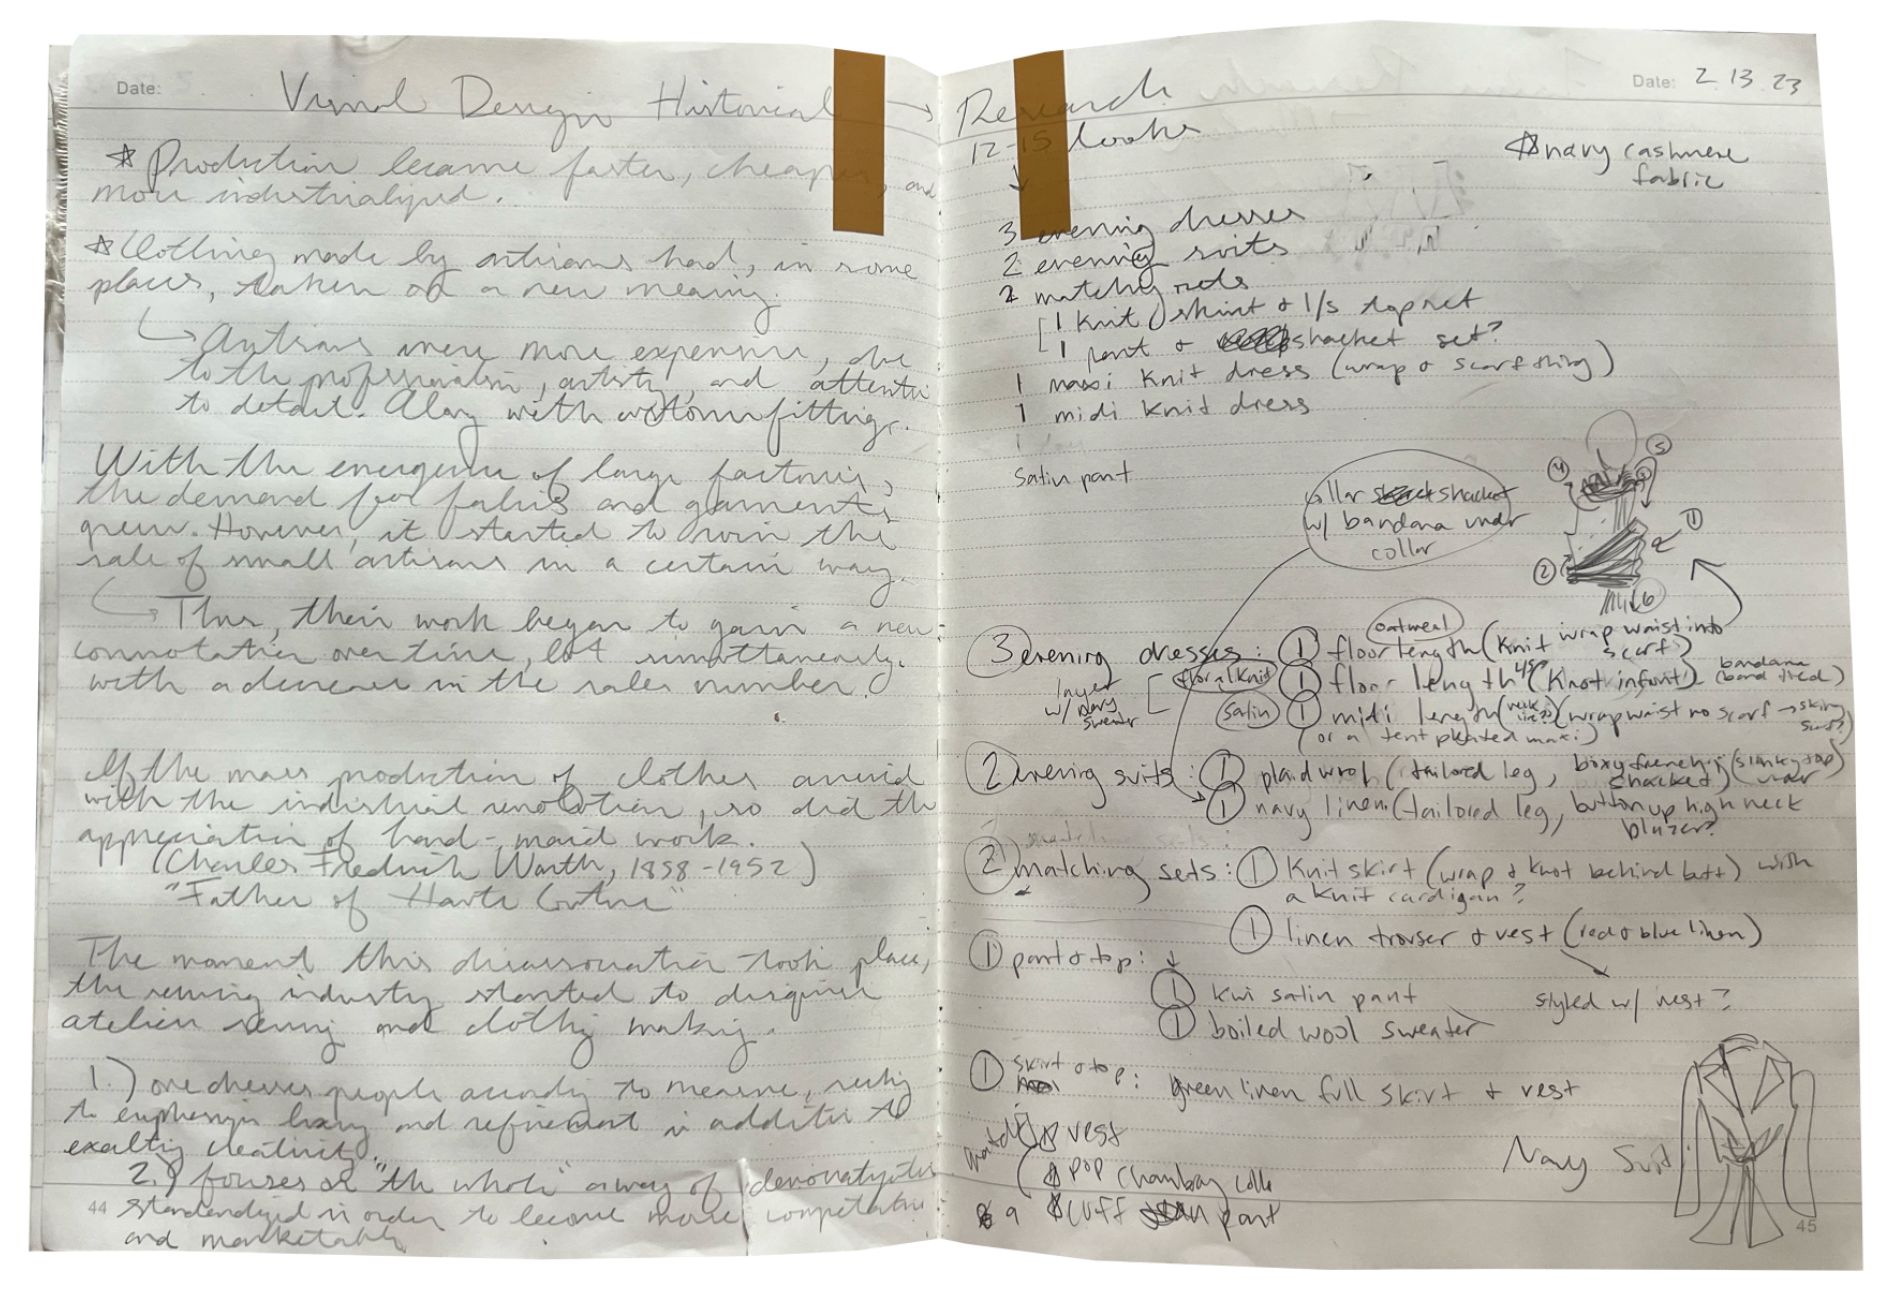 Date:
Visual Design Historical → Research
* Production became faster, cheaper, and
more industrialized.
* Clothing made by artisans had, in some
places, taken on a new meaning.
↳ Artisans were more expensive, due
to the professionalism, artistry, and attention
to detail. Along with custom fittings.
With the emergence of large factories,
the demand for fabrics and garments
grew. However, it started to ruin the
sale of small artisans in a certain way.
↳ Thus, their work began to gain a new
connotation over time, but simultaneously
with a decrease in the sales number.
If the mass production of clothes
with the industrial revolution, so did the
appreciation of hand-maid work.
(Charles Fredrich Worth, 1858-1952)
"Father of Haute Couture"
The moment this took place,
the sewing industry started to
atelier sewing and clothing making.
1.) one dresses people according to measure, seeking
to emphasize luxury and refinement in addition to
exalting creativity.
2.) focuses on "the whole" away of
standardized in order to become more competitive
and marketable
44
Date: 2.13.23
12-15 looks
* navy cashmere
fabric
3 evening dresses
2 evening suits
2 matching sets
1 knit skirt + l/s top set
1 pant + shacket set?
1 maxi knit dress (wrap + scarf thing)
1 midi knit dress
1
Satin pant
collar shacket
w/ bandana under
collar
4 5 3 1 2 6
oatmeal
3 evening dresses: 1 floor length (knit wrap waist into
scarf)
layer
w/ navy
sweater
floral knit 1 floor length (Knot infront) (bandana
band tied)
satin 1 midi length (neck
line?) (wrap waist no scarf → skinny
scarf?)
(or a tent pleated maxi)
2 evening suits: 1 plaid wool (tailored leg, boxy french
shacket) (slinky top
under)
1 navy linen (tailored leg, button up high neck
blazer?
2 matching sets: 1 Knit skirt (wrap & knot behind butt) with
a knit cardigan?
1 linen trouser + vest (red & blue linen)
styled w/ vest?
1 pant & top:
1 satin pant
1 boiled wool sweater
1 skirt & top: green linen full skirt + vest
vest
pop chambray
cuff pant
Navy Suit
45